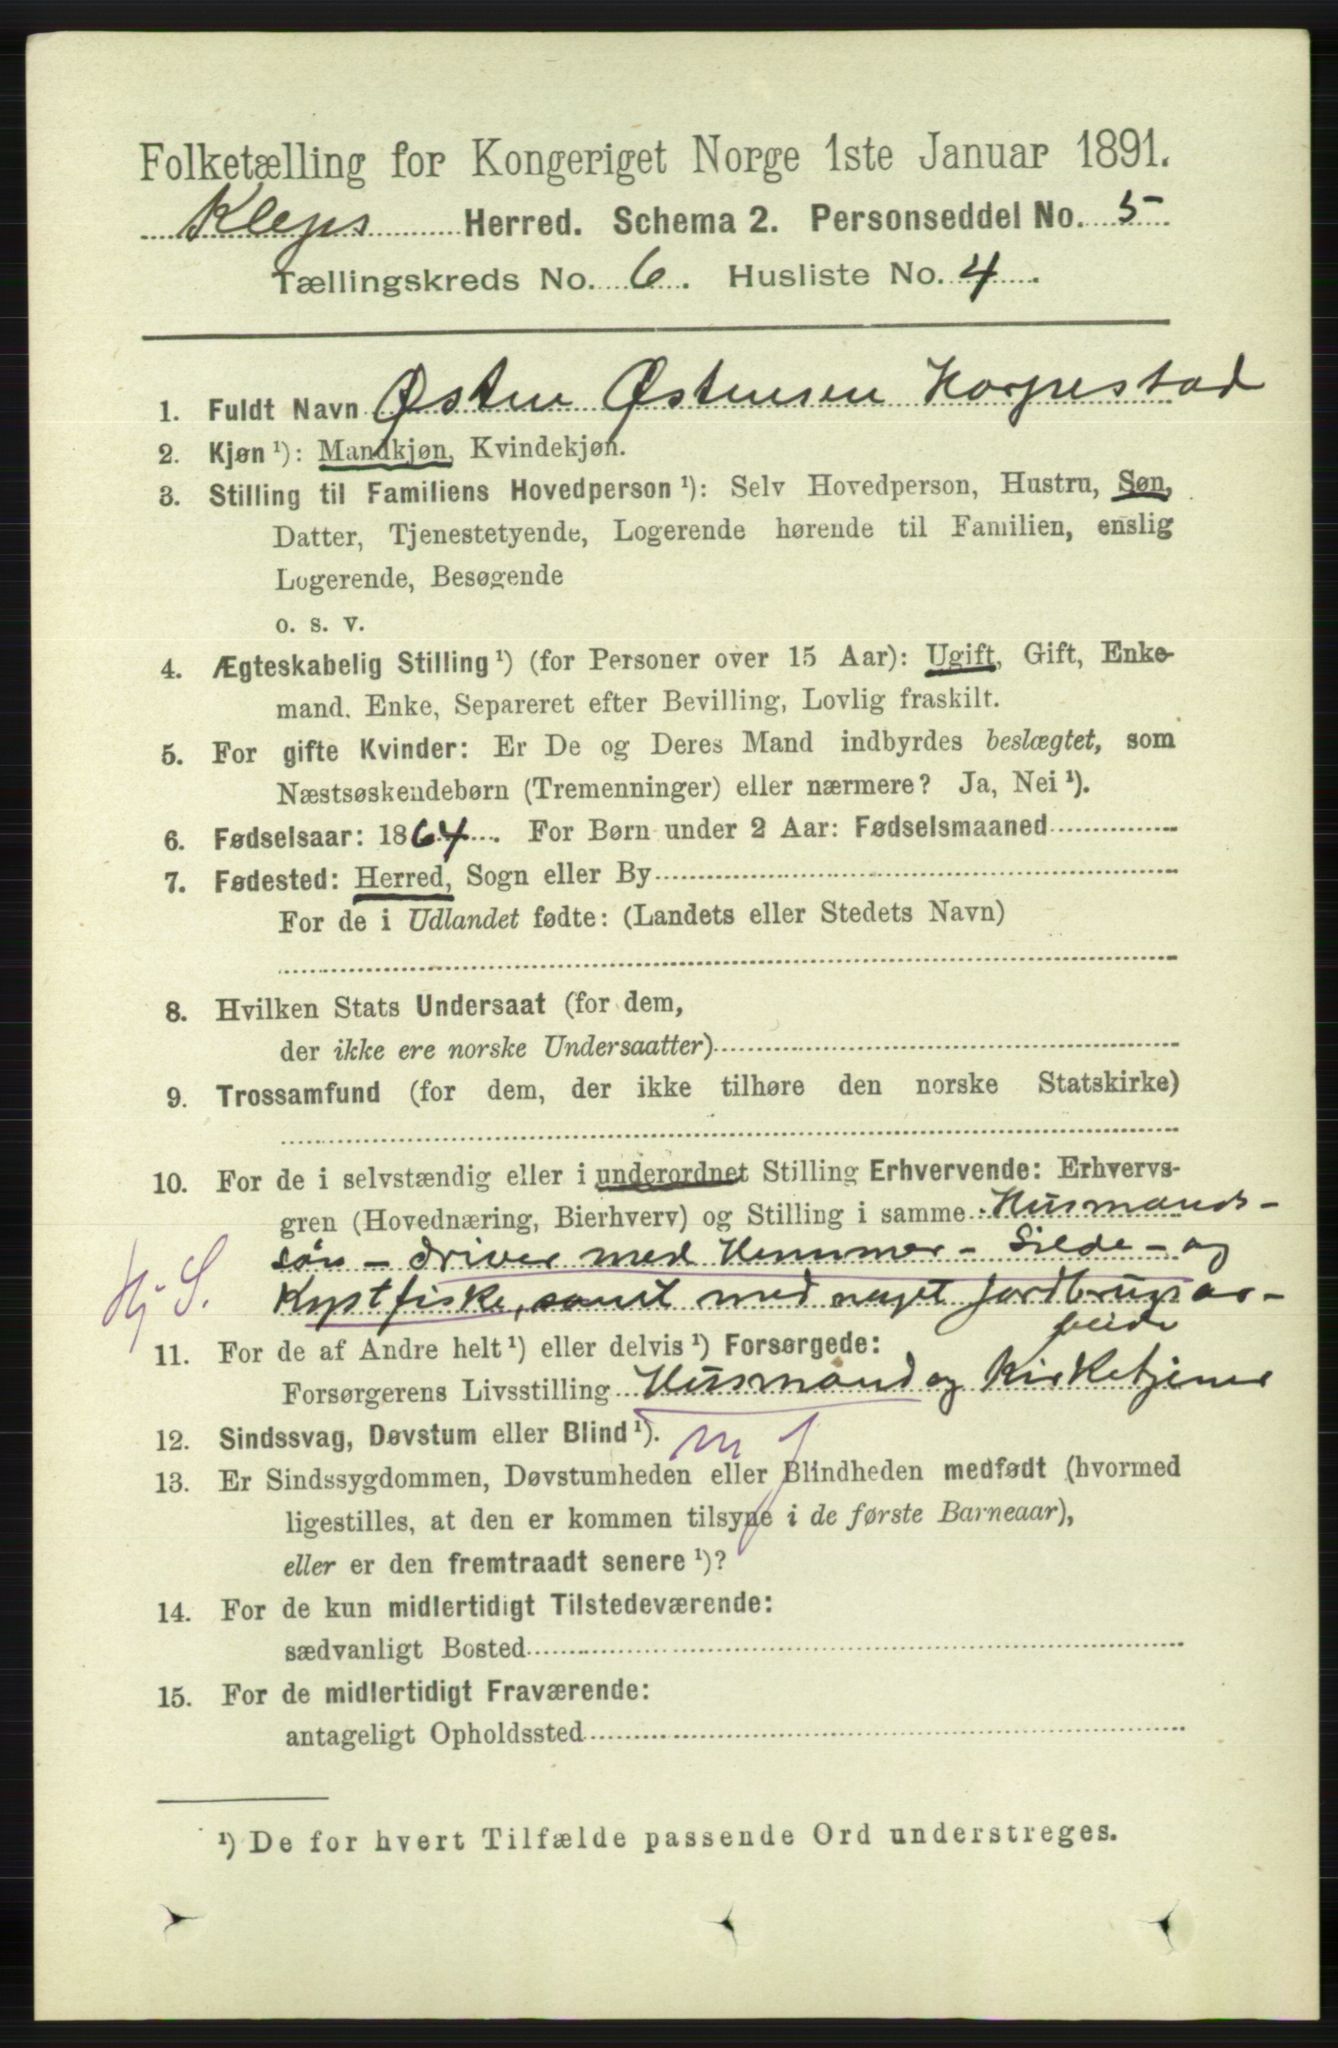 Folketælling for Kongeriget Norge 1ste Januar 1891.
Kleps Herred. Schema 2. Personseddel No. 5
Tællingskreds No. 6. Husliste No. 4.
1. Fuldt Navn Østen Østensen Horpestad
2. Kjøn ¹): Mandkjøn, Kvindekjøn.
3. Stilling til Familiens Hovedperson ¹): Selv Hovedperson, Hustru, Søn,
Datter, Tjenestetyende, Logerende hørende til Familien, enslig
Logerende, Besøgende
o. s. v.
4. Ægteskabelig Stilling ¹) (for Personer over 15 Aar): Ugift, Gift, Enke-
mand, Enke, Separeret efter Bevilling, Lovlig fraskilt.
5. For gifte Kvinder: Er De og Deres Mand indbyrdes beslægtet, som
Næstsøskendebørn (Tremenninger) eller nærmere? Ja, Nei ¹).
6. Fødselsaar: 1864. For Børn under 2 Aar: Fødselsmaaned
7. Fødested: Herred, Sogn eller By
For de i Udlandet fødte: (Landets eller Stedets Navn)
8. Hvilken Stats Undersaat (for dem,
der ikke ere norske Undersaatter)
9. Trossamfund (for dem, der ikke tilhøre den norske Statskirke)
10. For de i selvstændig eller i underordnet Stilling Erhvervende: Erhvervs-
gren (Hovednæring, Bierhverv) og Stilling i samme Husmands-
søn - driver med Hummer - Silde - og
Hj S. Kystfiske, samt med noget jordbrugsar-
beide
11. For de af Andre helt ¹) eller delvis ¹) Forsørgede:
Forsørgerens Livsstilling Husmand og Kirketjener
12. Sindssvag, Døvstum eller Blind ¹). m f
13. Er Sindssygdommen, Døvstumheden eller Blindheden medfødt (hvormed
ligestilles, at den er kommen tilsyne i de første Barneaar),
eller er den fremtraadt senere ¹)?
14. For de kun midlertidigt Tilstedeværende:
sædvanligt Bosted
15. For de midlertidigt Fraværende:
antageligt Opholdssted
¹) De for hvert Tilfælde passende Ord understreges.